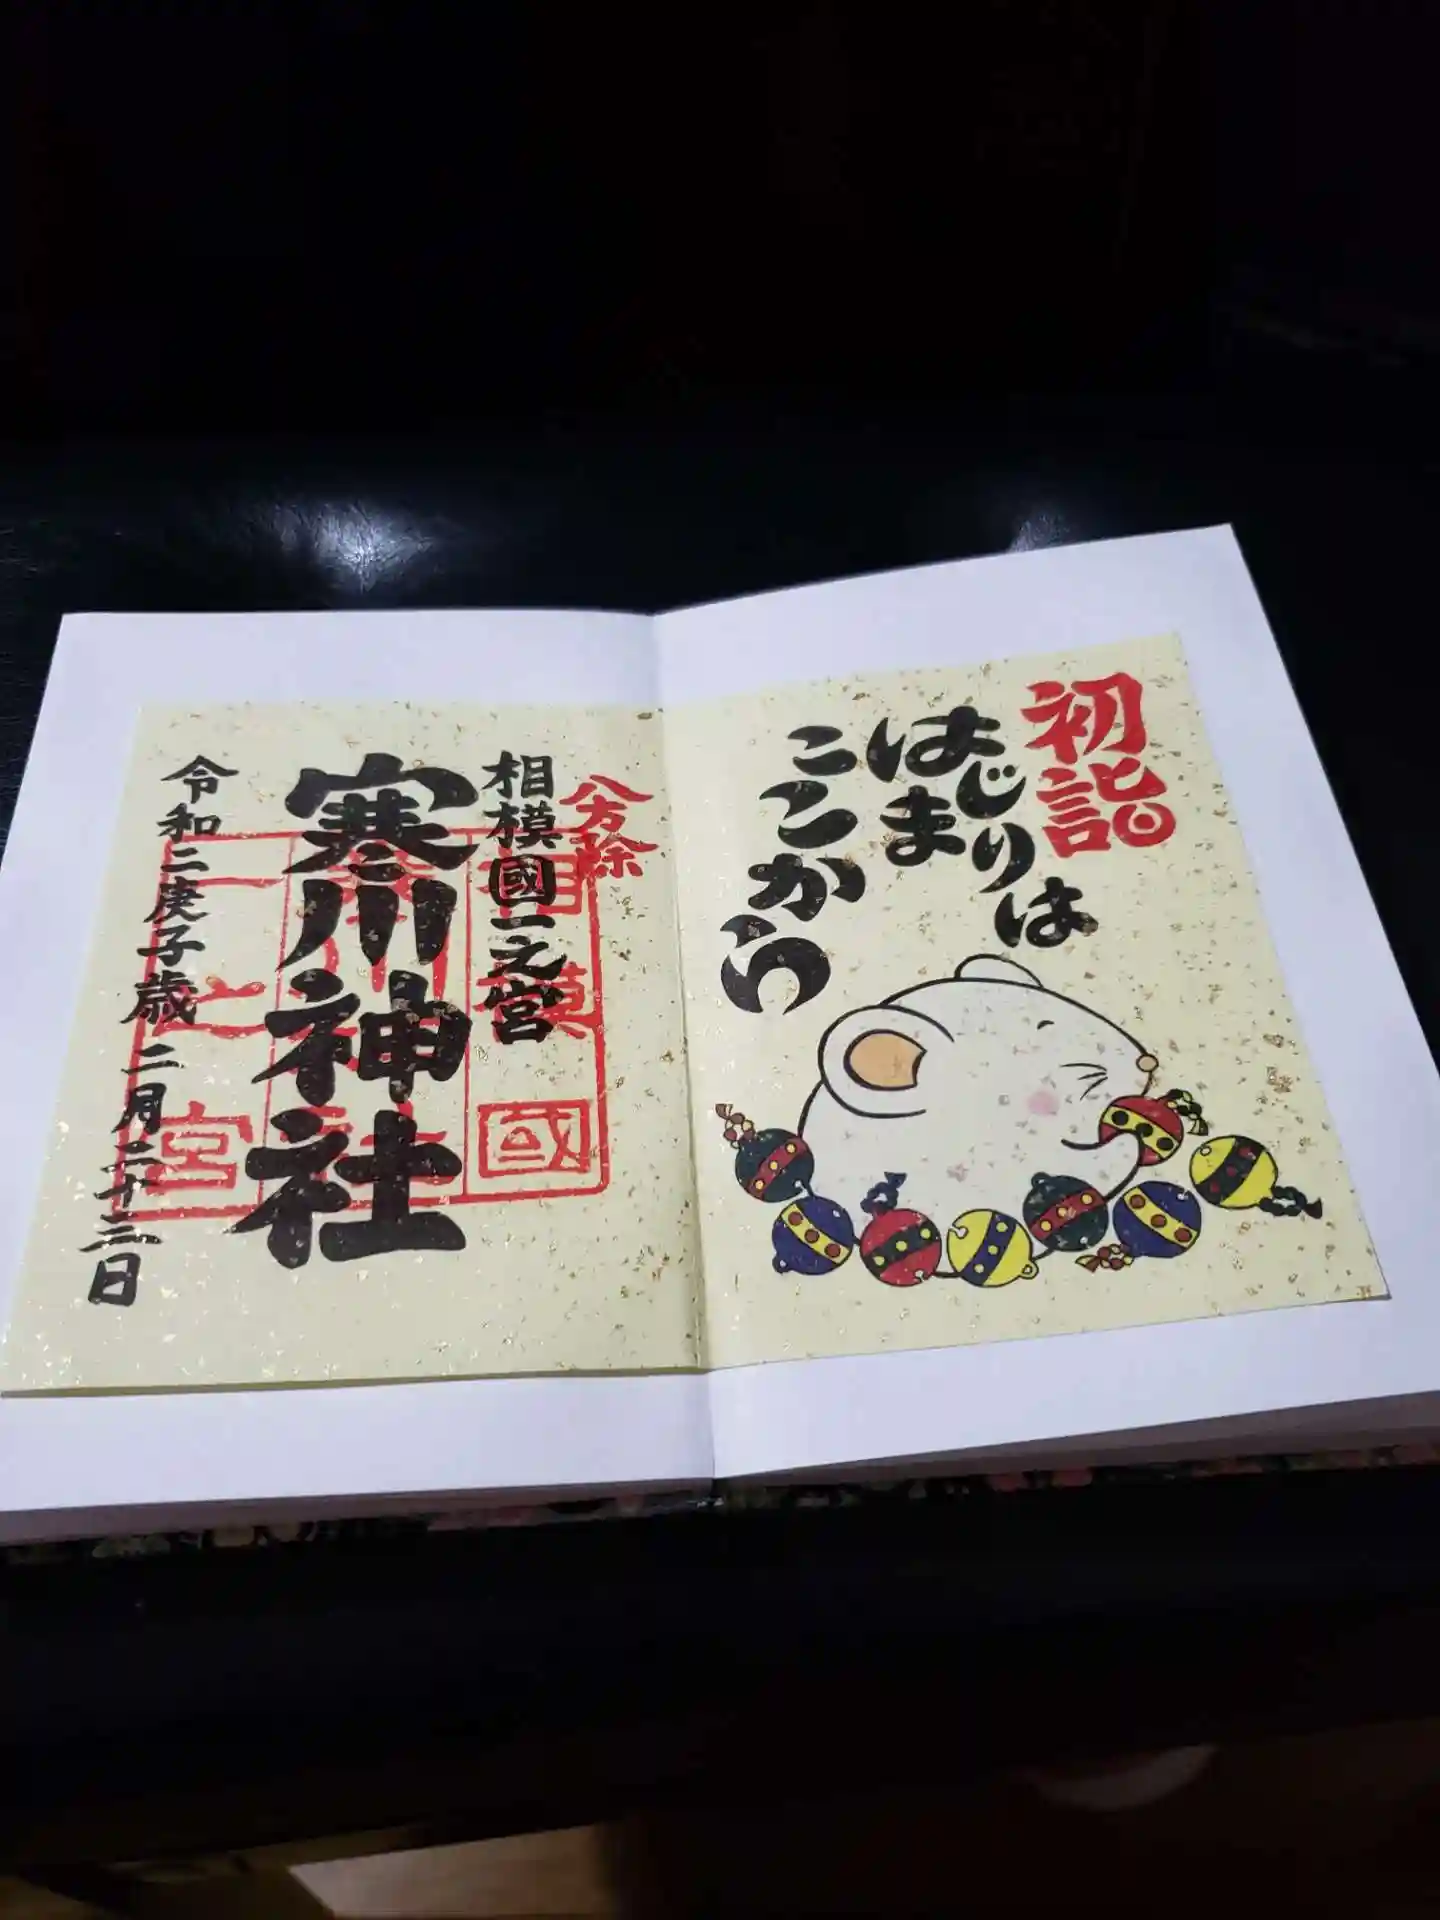 初詣
はじまりは
ここから
八方除
相模國一之宮
寒川神社
令和二庚子歳 二月二十三日
相模國
寒川神社
一之宮